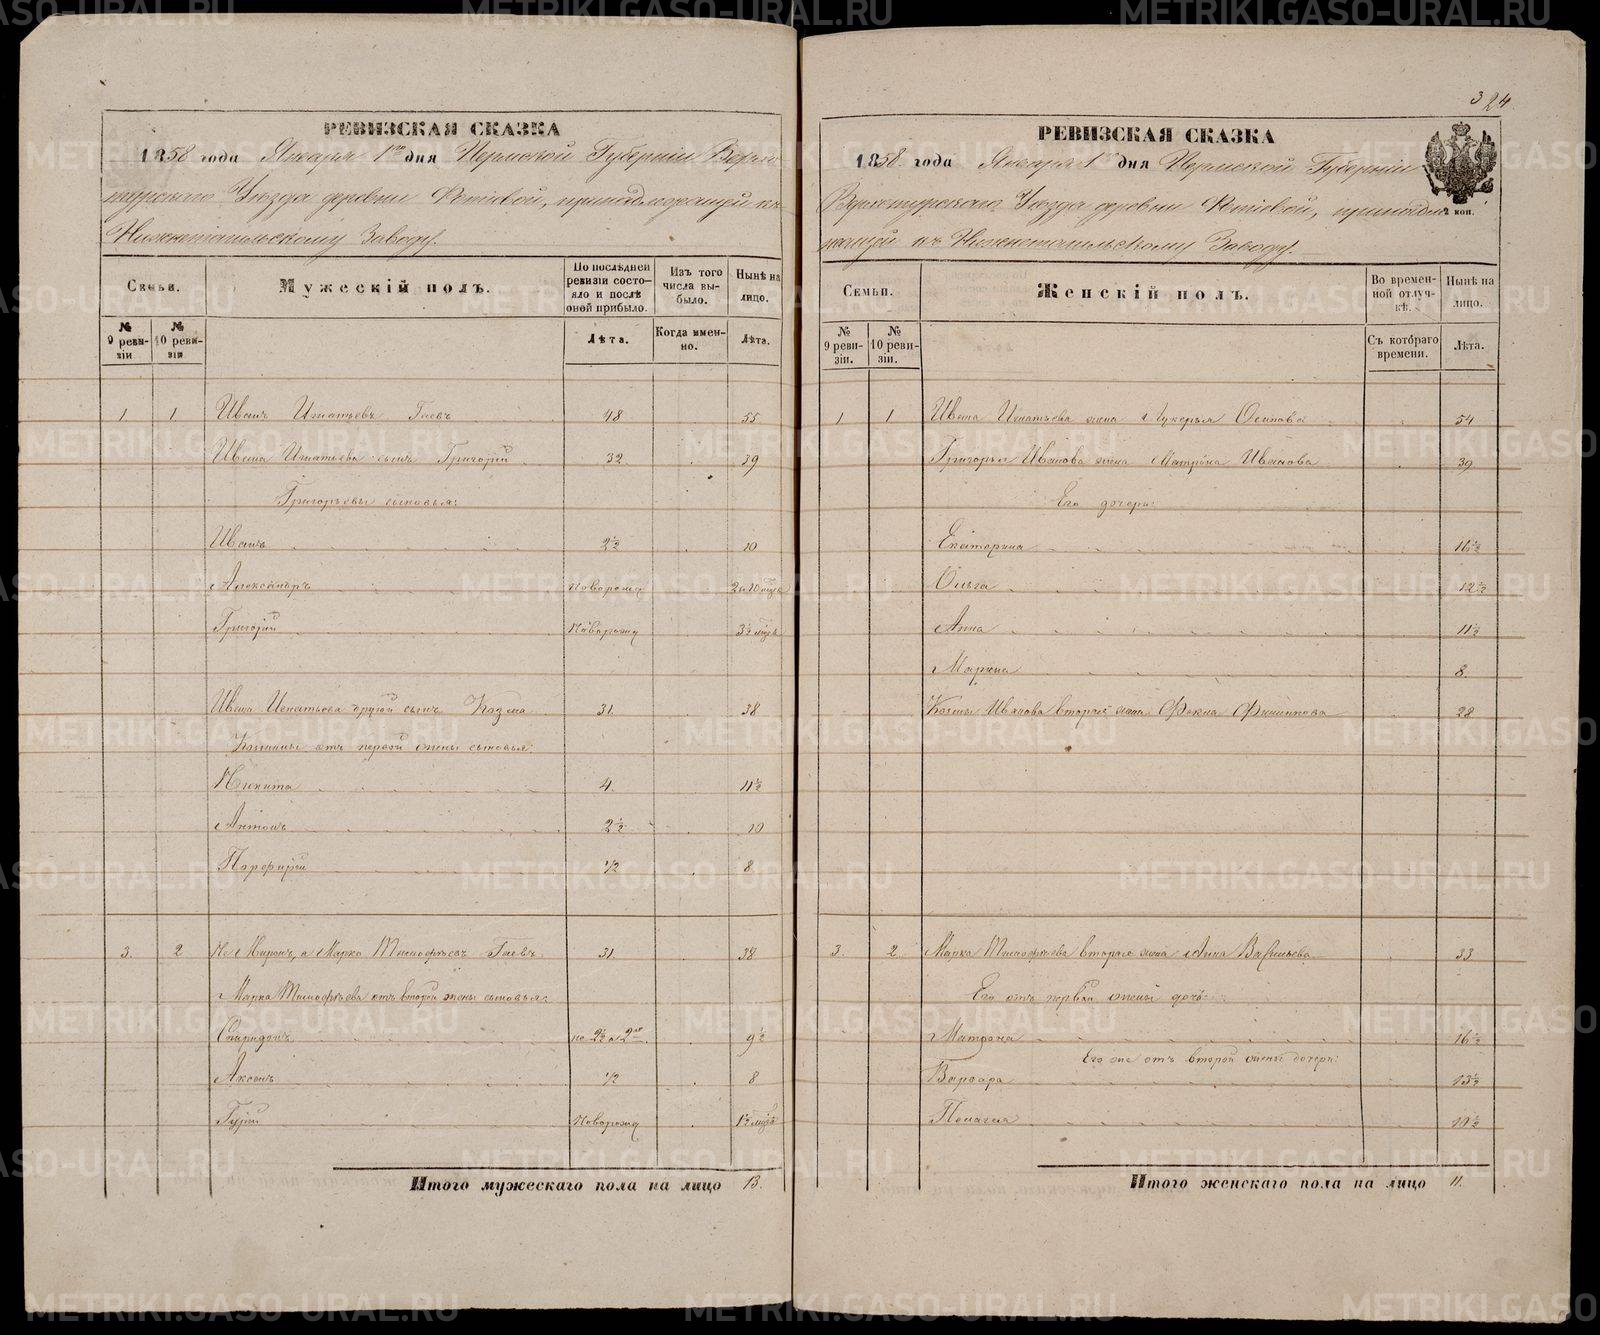 РЕВИЗСКАЯ СКАЗКА
1858 года Января 1го дня Пермской Губернiи Верхо
турскаго Уѣзда деревни Фотѣевой, принадлежащей къ
Нижнетагильскому Заводу.
Семьи.
Мужескій полъ.
По послѣдней ревизіи состояло и послѣ оной прибыло.
Изъ того числа выбыло.
Нынѣ на лицо.
№ 9 ревизіи
№ 10 ревизіи
Лѣта.
Когда именно.
Лѣта.
1 1 Иванъ Игнатьевъ Гаевъ 48 55
Ивана Игнатьева сынъ Григорій 32 39
Григорьевы сыновья:
Иванъ 2½ 10
Александръ новорожд 2 и 10 мцъ
Григорій новорожд 3½ мцъ
Ивана Игнатьева другой сынъ Козма 31. 38
Козмины отъ первой жены сыновья:
Никита 4. 11½
Антонъ 2½ 10
Порфирій 1/2 8
3. 2 Не Миронъ, а Марко Тимофѣевъ Гаевъ 31. 38
Марка Тимофѣева отъ второй жены сыновья:
Спиридонъ не 2½ а 2 9½
Аксенъ 1/2 8
Гурій новорожд 1½ мцъ
Итого мужескаго пола на лицо 13.
324
РЕВИЗСКАЯ СКАЗКА
1858 года Января 1го дня Пермской Губерніи
Верхотурскаго Уѣзда деревни Фотѣевой, принадле
жащей къ Нижнетагильскому Заводу.
коп.
Семьи.
Женскій полъ.
Во временной отлучкѣ.
Нынѣ на лицо.
№ 9 ревизіи.
№ 10 ревизіи.
Съ котораго времени.
Лѣта.
1 1 Ивана Игнатьева жена Лукерья Осипова 54
Григорья Иванова жена Матрена Иванова 39
Его дочери:
Екатерина 16½
Ольга 12½
Анна 11½
Марина 8
Козмы Иванова вторая жена Фекла Филипова 28
3. 2. Марка Тимофѣева вторая жена Анна Васильева 33
Его отъ первой жены дочь:
Матрона 16½
Его же отъ второй жены дочери:
Варвара 13½
Пелагея 11½
Итого женскаго пола на лицо 11.
METRIKI.GASO-URAL.RU